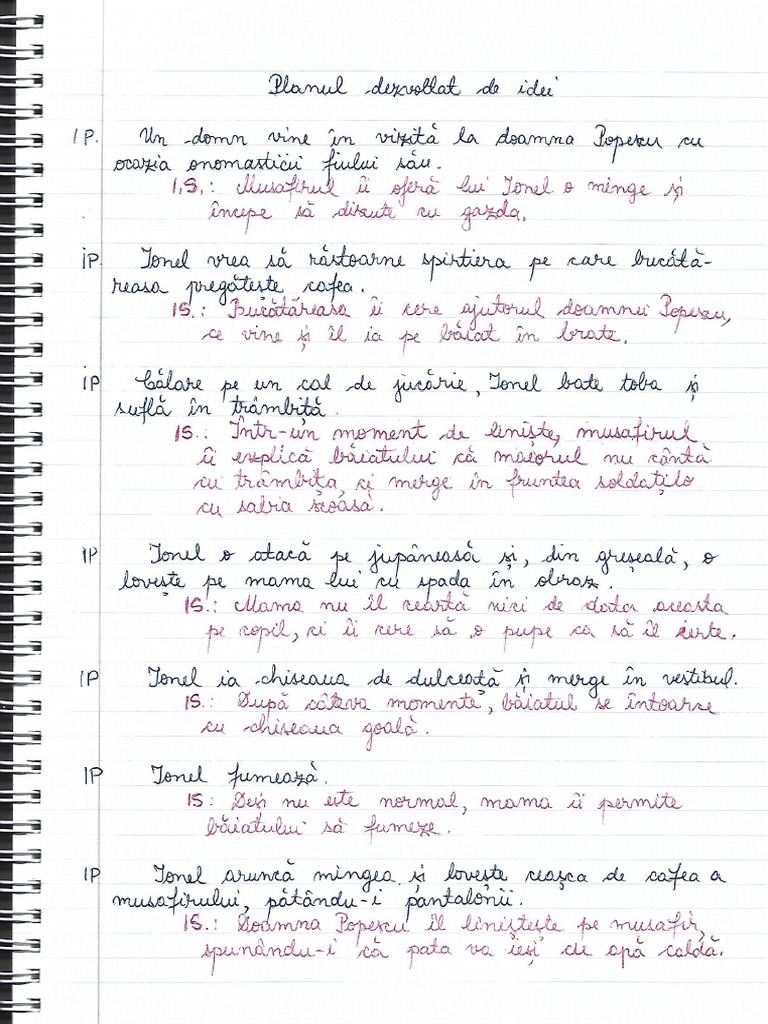 Planul dezvoltat de idei
IP. Un domn vine în vizită la doamna Popescu cu
ocazia onomasticii fiului său.
I.S.: Musafirul îi oferă lui Ionel o minge și
începe să discute cu gazda.
IP. Ionel vrea să răstoarne spirtiera pe care bucătă-
reasa pregătește cafea.
IS.: Bucătăreasa îi cere ajutorul doamnei Popescu,
ce vine și îl ia pe băiat în brațe.
IP Călare pe un cal de jucărie, Ionel bate toba și
suflă în trâmbiță.
IS.: Într-un moment de liniște, musafirul
îi explică băiatului că maiorul nu cântă
cu trâmbița, ci merge în fruntea soldaților
cu sabia scoasă.
IP Ionel o atacă pe jupâneasă și, din greșeală, o
lovește pe mama lui cu spada în obraz.
IS.: Mama nu îl ceartă nici de data aceasta
pe copil, ci îi cere să o pupe ca să îl ierte.
IP Ionel ia chiseaua de dulceață și merge în vestibul.
IS.: După câteva momente, băiatul se întoarce
cu chiseaua goală.
IP Ionel fumează.
IS: Deși nu este normal, mama îi permite
băiatului să fumeze.
IP Ionel aruncă mingea și lovește ceașca de cafea a
musafirului, pătându-i pantalonii.
IS.: Doamna Popescu îl liniștește pe musafir,
spunându-i că pata va ieși cu apă caldă.